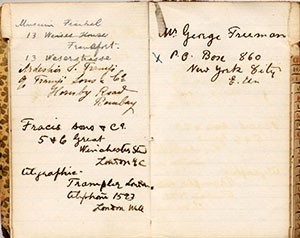 13 Weisee House
Frankfort.
13 Weserstrasse
Ardeshir
Sons & Co
Hornby Road
Bombay
Fracis Sons & Co.
5 & 6 Great
Winchester
London E.C
telegraphic.
Trampler London.
telephone 1523
London Wall
Mr George Freeman
x P.O. Box 860
New York City